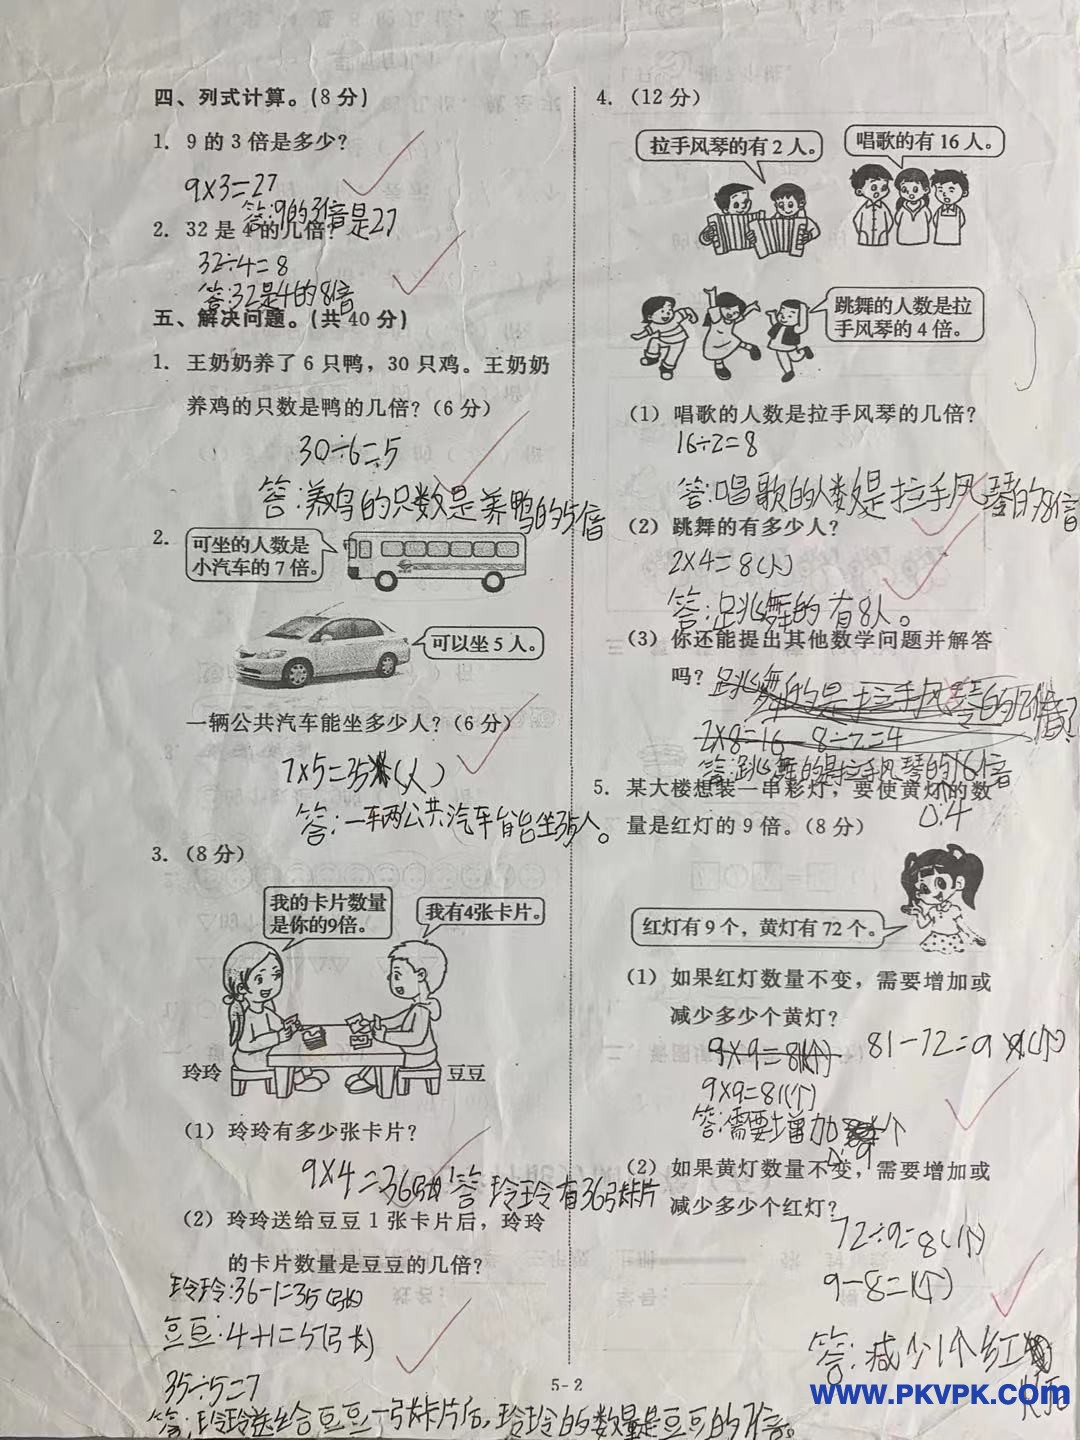 四、列式计算。(8分)
1. 9的3倍是多少?
9×3=27
答:9的3倍是27
2. 32是4的几倍?
32÷4=8
答:32是4的8倍
五、解决问题。(共40分)
1. 王奶奶养了6只鸭，30只鸡。王奶奶
养鸡的只数是鸭的几倍?(6分)
30÷6=5
答:养鸡的只数是养鸭的5倍
2.
可坐的人数是
小汽车的7倍。
可以坐5人。
一辆公共汽车能坐多少人?(6分)
7×5=35(人)
答:一辆公共汽车能坐35人。
3.(8分)
我的卡片数量
是你的9倍。
我有4张卡片。
玲玲
豆豆
(1) 玲玲有多少张卡片?
9×4=36(张)答玲玲有36张卡片
(2) 玲玲送给豆豆1张卡片后，玲玲
的卡片数量是豆豆的几倍?
玲玲:36-1=35(张)
豆豆:4+1=5(张)
35÷5=7
答:玲玲送给豆豆一张卡片后,玲玲的数量是豆豆的7倍。
4.(12分)
拉手风琴的有2人。
唱歌的有16人。
跳舞的人数是拉
手风琴的4倍。
(1) 唱歌的人数是拉手风琴的几倍?
16÷2=8
答:唱歌的人数是拉手风琴的8倍
(2) 跳舞的有多少人?
2×4=8(人)
答:跳舞的有8人。
(3) 你还能提出其他数学问题并解答
吗?跳舞的是拉手风琴的几倍?
2×8=16 8÷2=4
答:跳舞的是拉手风琴的倍
4
5. 某大楼想装一串彩灯，要使黄灯的数
量是红灯的9倍。(8分)
红灯有9个，黄灯有72个。
(1) 如果红灯数量不变，需要增加或
减少多少个黄灯?
9×9=81(个) 81-72=9(个)
9×9=81(个)
答:需要增加个
9
(2) 如果黄灯数量不变，需要增加或
减少多少个红灯?
72÷9=8(个)
9-8=1(个)
答:减少1个红
灯
5-2
www.PKVPK.com